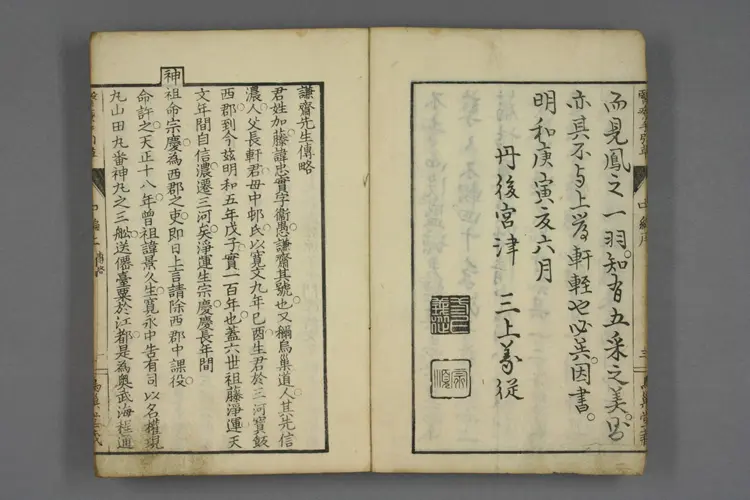 而見鳳之一羽。知有五采之美。
亦其不与上為軒輊也必矣。因書。
明和庚寅夏六月
丹後宮津 三上義従
謙齋先生傳略
君姓加藤諱忠實字衞愚。謙齋其號也。又稱烏巢道人。其先信
濃人。父長軒君。母中邨氏。以寛文九年己酉生君於三河寶飯
西郡。到今玆明和五年戊子。實一百年也。蓋六世祖藤淨運天
文年間自信濃遷三河矣。淨運生宗慶。慶長年間
神
祖命宗慶為西郡之吏。即日上言請除西郡中課役。
命許之。天正十八年。曾祖諱景久生。寛永中告有司以名權現
丸山田丸番神丸之三船。送僊臺粟於江都。是為奥武海程通